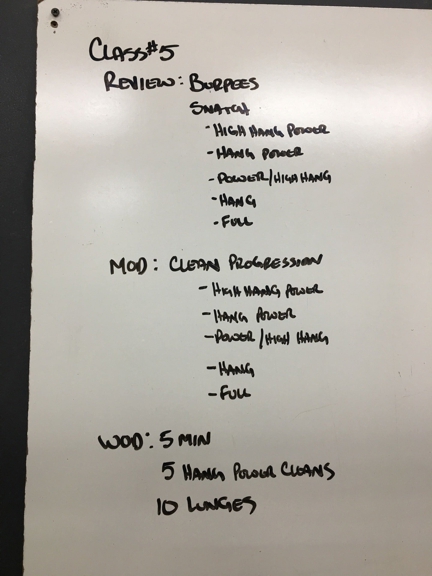 CLASS #5
REVIEW: BURPEES
SNATCH
- HIGH HANG POWER
- HANG POWER
- POWER/HIGH HANG
- HANG
- FULL
MOD: CLEAN PROGRESSION
- HIGH HANG POWER
- HANG POWER
- POWER/HIGH HANG
- HANG
- FULL
WOD: 5 MIN
5 HANG POWER CLEANS
10 LUNGES